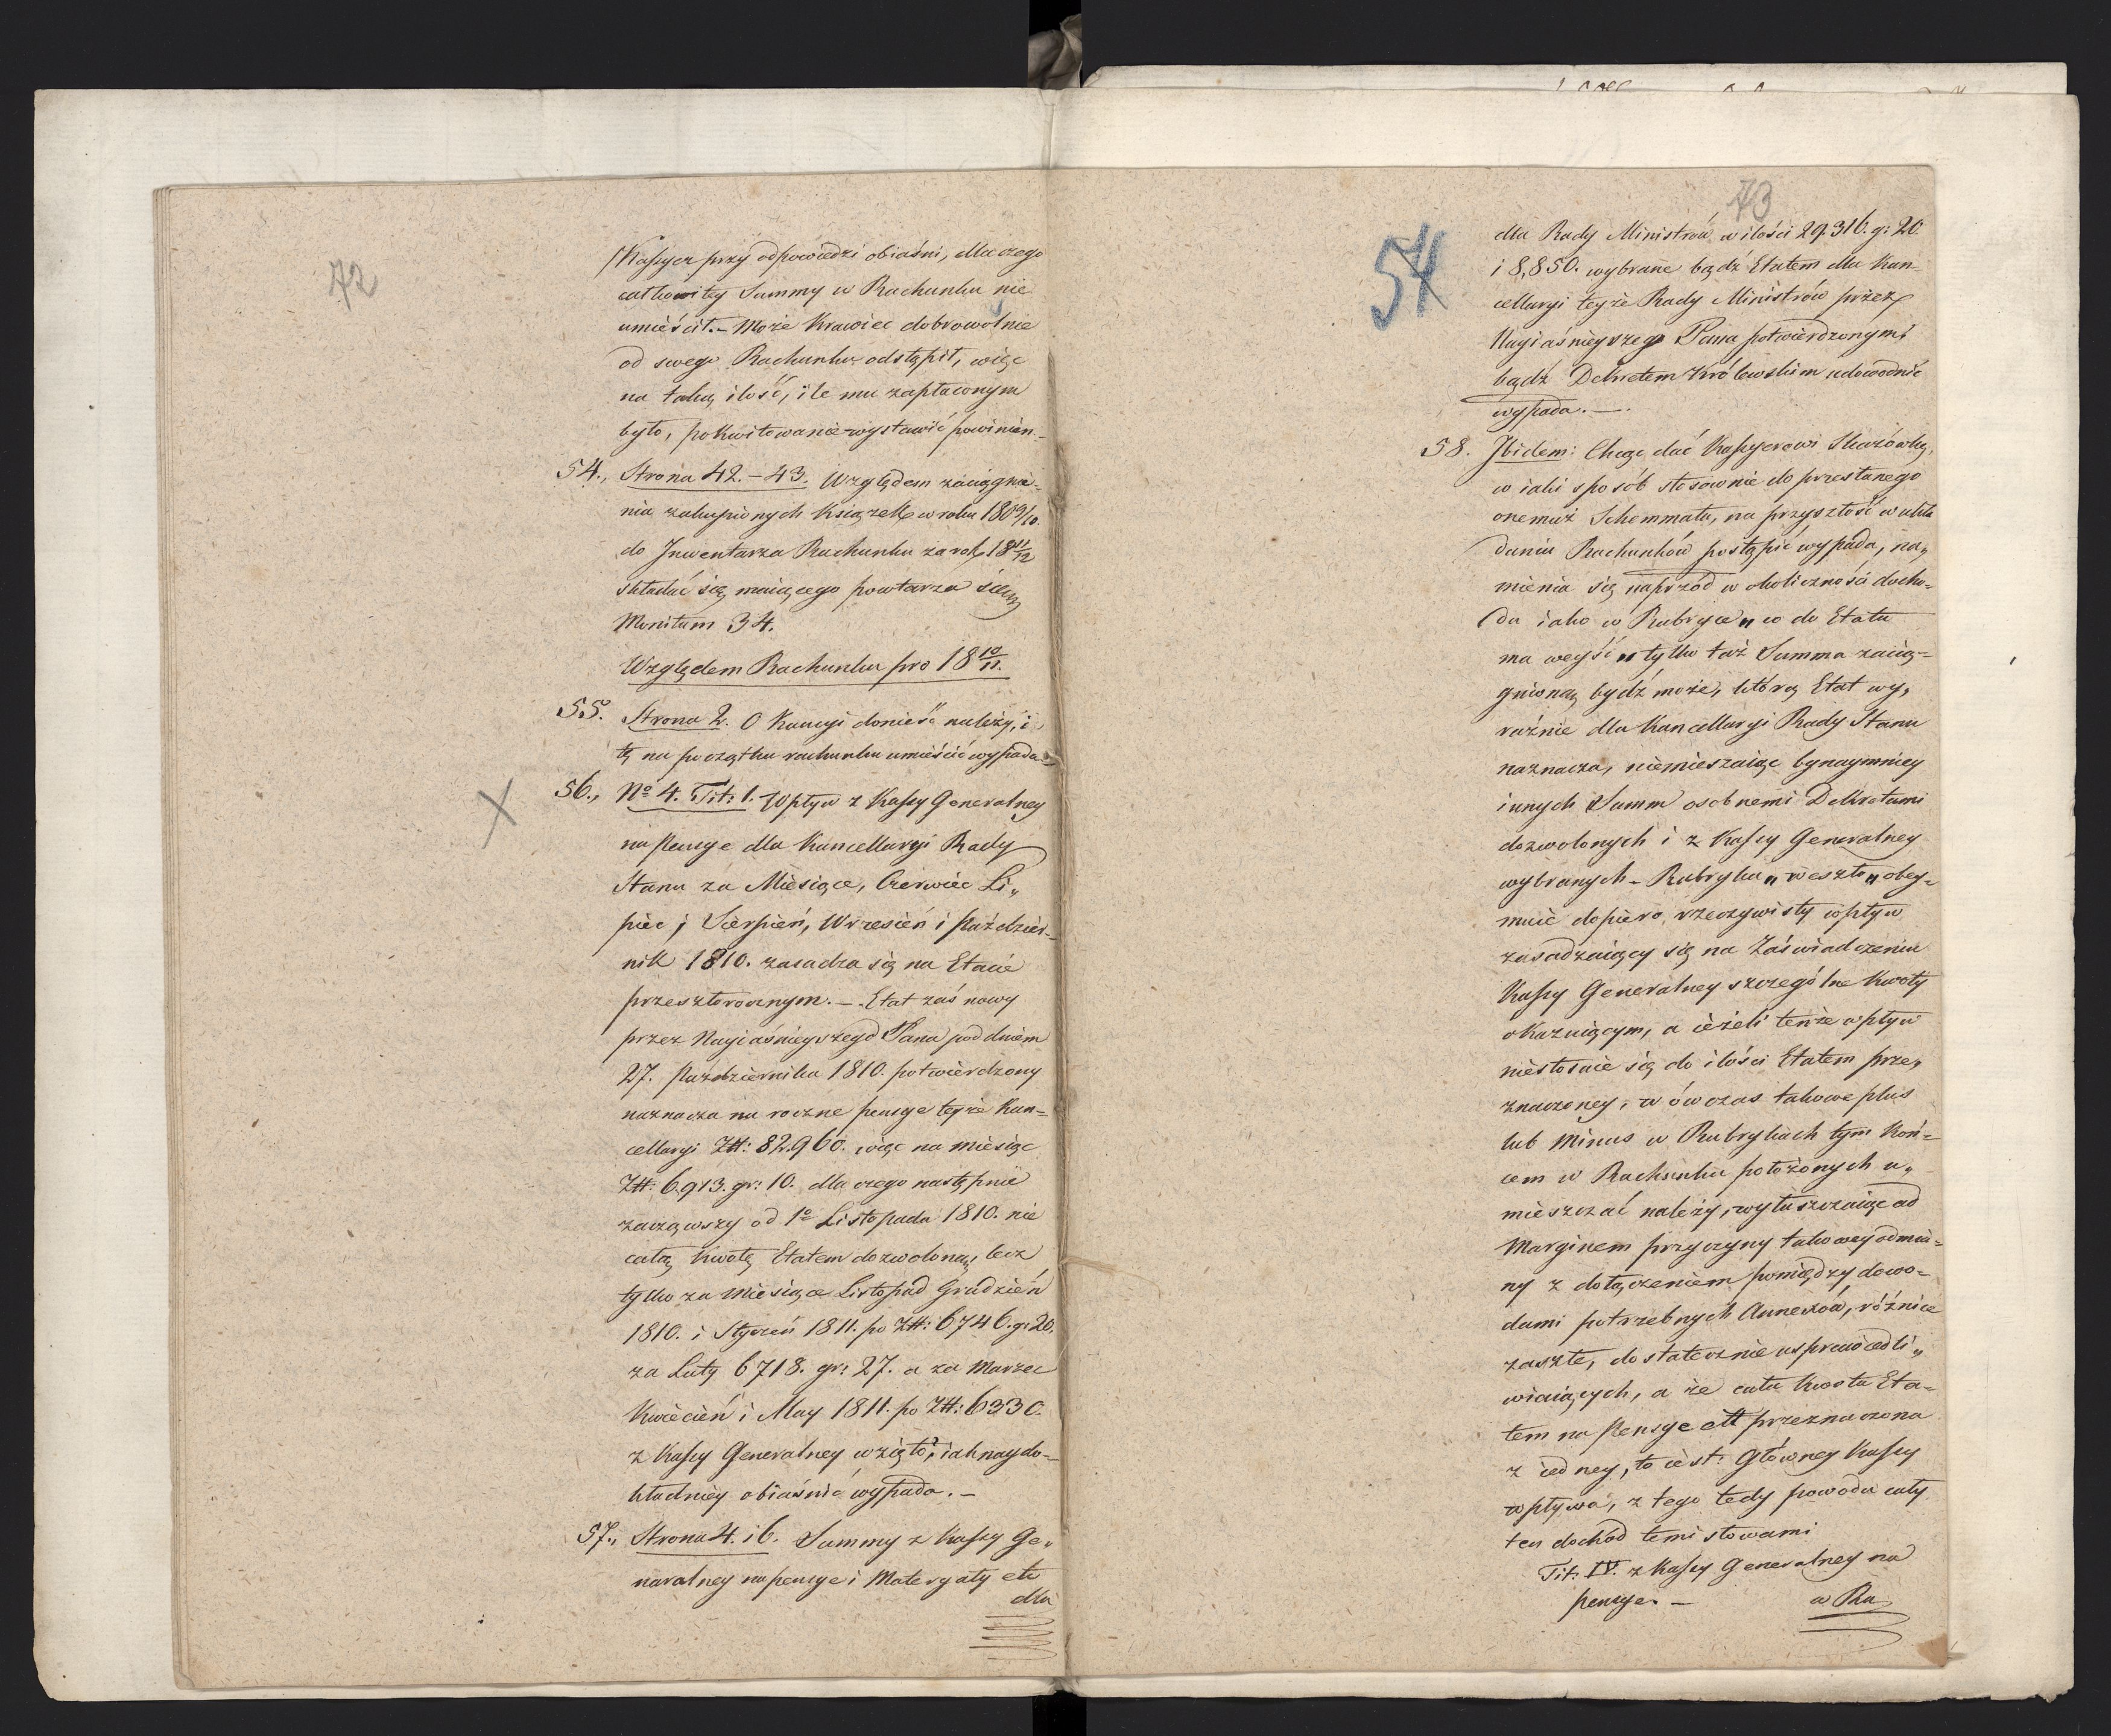 72
Kassyer przy odpowiedzi obiaśni, dlaczego
całkowitey Summy w Rachunku nie
umieścił. – Może Krawiec dobrowolnie
od swego Rachunku odstąpił, więc
na taką ilość, ile mu zapłaconym
było, pokwitowanie wystawić powinien. –
54., Strona 42. – 43. Względem zaciągnie-
nia zakupionych Książek w roku 1809/10.
do Inwentarza Rachunku za rok 18 11/12
składać się maiącego powtarza się
Monitum 34.
Względem Rachunku pro 18 10/11.
55. Strona 2. O Kaucyi donieść należy, i
tę na początku rachunku umieścić wypada. –
56., No 4. Tit: 1. Wpływ z Kassy Generalney
na Pensye dla Kancellaryi Rady
Stanu za Miesiące, Czerwiec Li„
piec, Sierpień, Wrzesień i Paździer-
nik 1810. zasadza się na Etacie
przeszłorocznym. – Etat zaś nowy
przez Nayiaśnieyszego Pana pod dniem
27. Października 1810. potwierdzony
naznacza na roczne pensye teyże Kan=
cellaryi Zł: 82.960. więc na miesiąc
Zł: 6.913. gr: 10. dla czego następnie
zacząwszy od 1o Listopada 1810. nie
całą Kwotę Etatem dozwoloną, lecz
tylko za Miesiące Listopad Grudzień
1810. i Styczeń 1811. po Zł: 6746. g: 20.
za Luty 6718. gr: 27. a za Marzec
Kwiecień i May 1811. po Zł: 6330.
z Kassy Generalney wzięto?, iak naydo-
kładniey obiaśnić wypada. –
57., Strona 4. i 6. Summy z Kassy Ge„
naralney na pensye i Materyały etc
dla
73
54
dla Rady Ministrów w ilości 29.316. g: 20
i 8,850. wybrane bądź Etatem dla Kan-
cellaryi teyże Rady Ministrów przez
Nayiaśnieyszego Pana potwierdzonym,
bądź Dekretem Królewskim udowodnić
wypada. –.
58. Ibidem: Chcąc dać Kassyerowi Skazówkę,
w iaki sposób stosownie do przesłanego
onemuż Schemmatu, na przyszłość w ukła
daniu Rachunków postąpić wypada, na„
mienia się naprzód w okoliczności docho-
du iako w Rubryce „co do Etatu
ma weyść„ tylko taż Summa zacią=
gnioną bydź może, którą Etat wy„
raźnie dla Kancellaryi Rady Stanu
naznacza, niemieszaiąc bynaymniey
innych Summ osobnemi Dekretami
dozwolonych i z Kassy Generalney
wybranych – Rubryka „weszło„ obey=
muie dopiero rzeczywisty wpływ
zasadzaiący się na Zaświadczeniu
Kassy Generalney szczególne Kwoty
okazuiącym, a ieżeli tenże wpływ
niestosuie się do ilości Etatem prze„
znaczoney, w ówczas takowe plus
lub Minus w Rubrykach tym Koń=
cem w Rachunku położonych u„
mieszczać należy, wyłuszczaiąc ad
Marginem przyczyny takowey odmia=
ny z dołączeniem pomiędzy dowo=
dami potrzebnych Annexów, różnice
zaszłe, dostatecznie usprawiedli„
wiaiących, a że cała Kwota Eta=
tem na Pensye ett przeznaczona
z iedney, to iest: Główney Kassy
wpływa, z tego tedy powodu cały
ten dochód temi słowami
Tit: IV. z Kassy Generalney na
pensye. –
w Ru